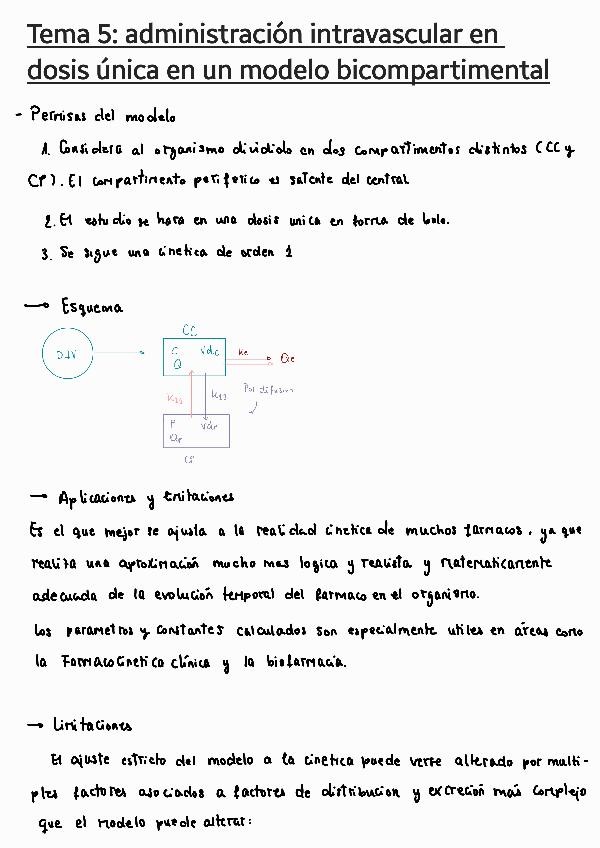 Tema 5: administración intravascular en
dosis única en un modelo bicompartimental
- Permisas del modelo
1. Considera al organismo dividido en dos compartimentos distintos (CC y
CP). El compartimento periferico es satente del central
2. El estudio se hara en una dosis unica en forma de bolo.
3. Se sigue una cinetica de orden 1
→ Esquema
CC
DIV
C Vdc Ke Qe
Q
K21 K12 Por difusion
P Vdp
Qp
CP
→ Aplicaciones y limitaciones
Es el que mejor se ajusta a la realidad cinetica de muchos farmacos, ya que
realiza una aproximación mucho mas logica y realista y matematicamente
adecuada de la evolución temporal del farmaco en el organismo.
Los parametros y constantes calculados son especialmente utiles en áreas como
la Farmacocinetica clínica y la biofarmacia.
→ Limitaciones
El ajuste estricto del modelo a la cinetica puede verse alterado por multi-
ples factores asociados a factores de distribucion y excrecion más complejo
que el modelo puede alterar: